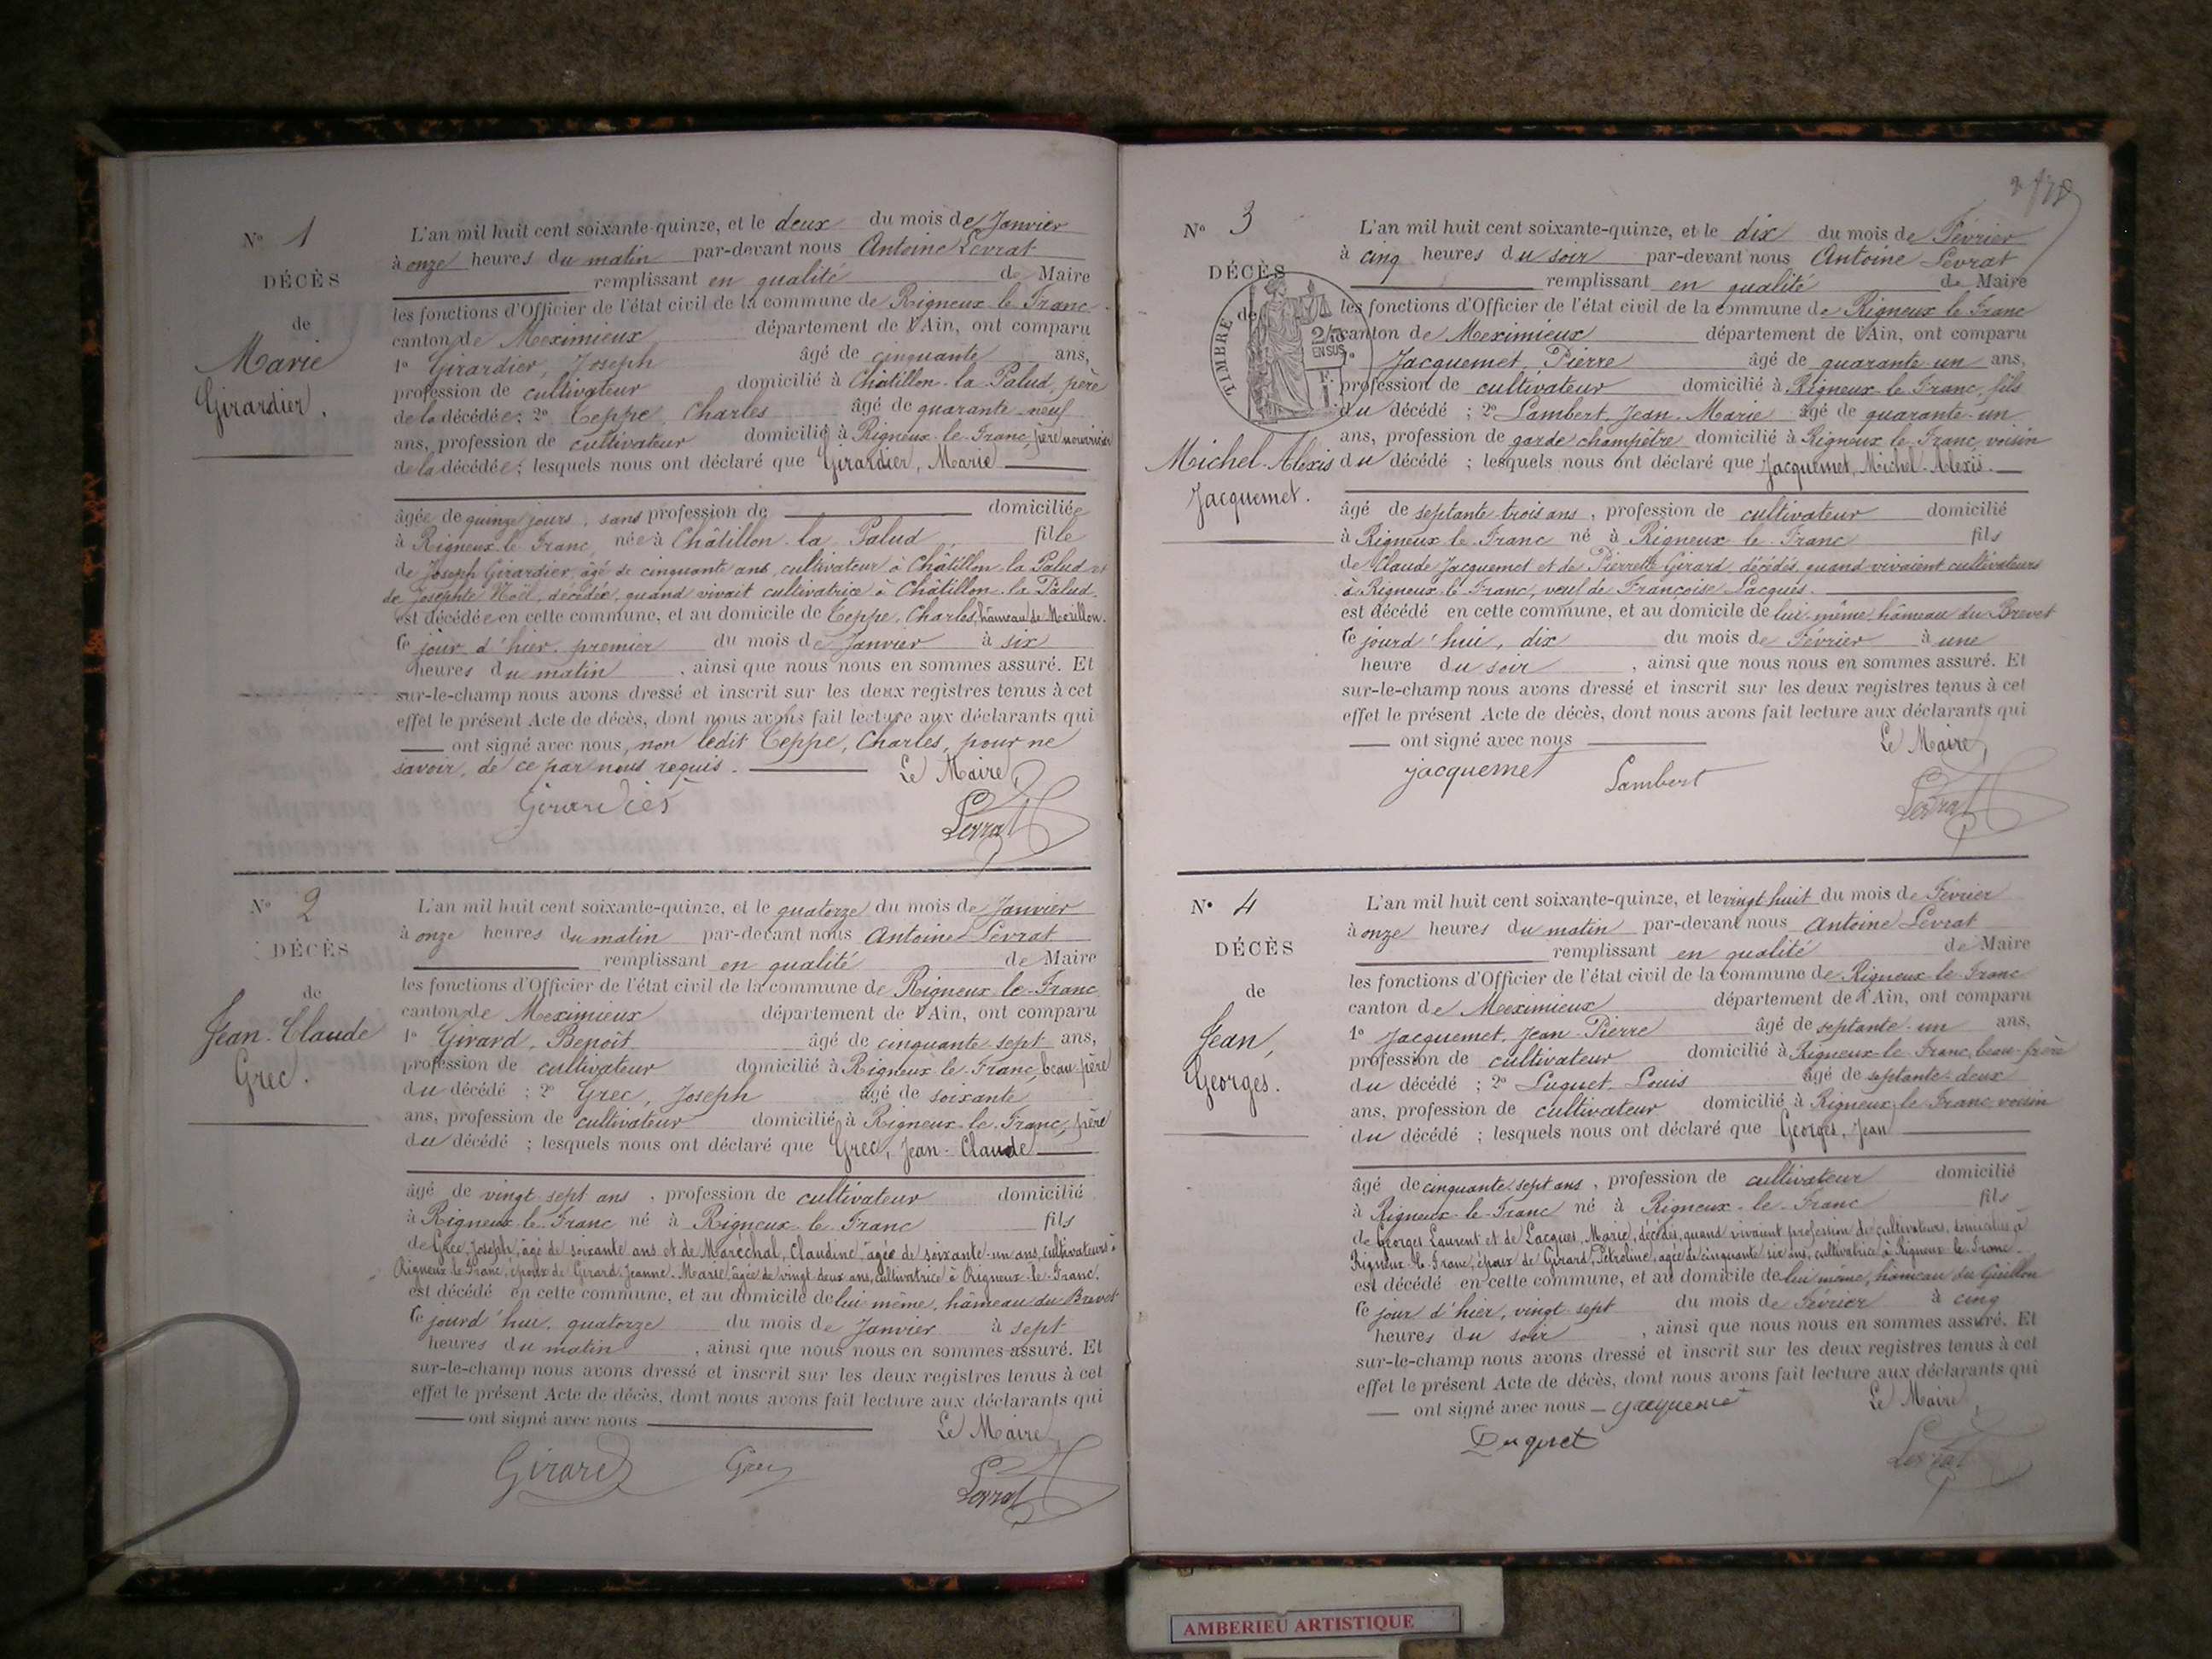 N° 1
DÉCÈS
de
Marie
Girardier.
L'an mil huit cent soixante-quinze, et le deux du mois de Janvier
à onze heures du matin par-devant nous Antoine Levrat
remplissant en qualité de Maire
les fonctions d'Officier de l'état civil de la commune de Rigneux-le-Franc
canton de Meximieux département de l'Ain, ont comparu
1° Girardier, Joseph âgé de cinquante ans,
profession de cultivateur domicilié à Châtillon-la-Palud, père
de la décédée; 2° Teppe, Charles âgé de quarante-neuf
ans, profession de cultivateur domicilié à Rigneux-le-Franc, père nourricier
de la décédée; lesquels nous ont déclaré que Girardier, Marie
âgée de quinze jours, sans profession de domiciliée
à Rigneux-le-Franc, née à Châtillon-la-Palud, fille
de Joseph Girardier, âgé de cinquante ans, cultivateur à Châtillon-la-Palud et
de Josephte Noël, décédée, quand vivait cultivatrice à Châtillon-la-Palud.
est décédée en cette commune, et au domicile de Teppe, Charles, hâmeau de Morillon.
le jour d'hier, premier du mois de Janvier à six
heures du matin, ainsi que nous nous en sommes assuré. Et
sur-le-champ nous avons dressé et inscrit sur les deux registres tenus à cet
effet le présent Acte de décès, dont nous avons fait lecture aux déclarants qui
ont signé avec nous, non ledit Teppe, Charles, pour ne
savoir, de ce par nous requis. Le Maire
Girardier Levrat
N° 2
DÉCÈS
de
Jean-Claude
Grec.
L'an mil huit cent soixante-quinze, et le quatorze du mois de Janvier
à onze heures du matin par-devant nous Antoine Levrat
remplissant en qualité de Maire
les fonctions d'Officier de l'état civil de la commune de Rigneux-le-Franc
canton de Meximieux département de l'Ain, ont comparu
1° Girard, Benoît âgé de cinquante sept ans,
profession de cultivateur domicilié à Rigneux-le-Franc, beau-père
du décédé; 2° Grec, Joseph âgé de soixante
ans, profession de cultivateur domicilié à Rigneux-le-Franc, père
du décédé; lesquels nous ont déclaré que Grec, Jean-Claude
âgé de vingt-sept ans, profession de cultivateur domicilié
à Rigneux-le-Franc né à Rigneux-le-Franc fils
de Grec, Joseph, âgé de soixante ans et de Maréchal, Claudine, âgée de soixante-un ans, cultivateurs à
Rigneux-le-Franc, époux de Girard, Jeanne-Marie, âgée de vingt deux ans, cultivatrice à Rigneux-le-Franc.
est décédé en cette commune, et au domicile de lui-même, hâmeau du Brevet
le jourd'hui, quatorze du mois de Janvier à sept
heures du matin, ainsi que nous nous en sommes assuré. Et
sur-le-champ nous avons dressé et inscrit sur les deux registres tenus à cet
effet le présent Acte de décès, dont nous avons fait lecture aux déclarants qui
ont signé avec nous Le Maire
Girard Grec Levrat
N° 3
DÉCÈS
de
TIMBRE
EN SUS
Michel-Alexis
Jacquemet.
L'an mil huit cent soixante-quinze, et le dix du mois de Février
à cinq heures du soir par-devant nous Antoine Levrat
remplissant en qualité de Maire
les fonctions d'Officier de l'état civil de la commune de Rigneux-le-Franc
canton de Meximieux département de l'Ain, ont comparu
1° Jacquemet, Pierre âgé de quarante-un ans,
profession de cultivateur domicilié à Rigneux-le-Franc, fils
du décédé; 2° Lambert, Jean-Marie âgé de quarante-un
ans, profession de garde champêtre domicilié à Rigneux-le-Franc, voisin
du décédé; lesquels nous ont déclaré que Jacquemet, Michel-Alexis.
âgé de septante-trois ans, profession de cultivateur domicilié
à Rigneux-le-Franc né à Rigneux-le-Franc fils
de Claude Jacquemet et de Pierrette Girard décédés, quand vivaient cultivateurs
à Rigneux-le-Franc, veuf de Françoise Lacques.
est décédé en cette commune, et au domicile de lui-même, hâmeau du Brevet
le jourd'hui, dix du mois de Février à une
heure du soir, ainsi que nous nous en sommes assuré. Et
sur-le-champ nous avons dressé et inscrit sur les deux registres tenus à cet
effet le présent Acte de décès, dont nous avons fait lecture aux déclarants qui
ont signé avec nous Le Maire,
jacquemet Lambert Levrat
N° 4
DÉCÈS
de
Jean,
Georges.
L'an mil huit cent soixante-quinze, et le vingt huit du mois de Février
à onze heures du matin par-devant nous Antoine Levrat
remplissant en qualité de Maire
les fonctions d'Officier de l'état civil de la commune de Rigneux-le-Franc
canton de Meximieux département de l'Ain, ont comparu
1° Jacquemet, Jean-Pierre âgé de septante-un ans,
profession de cultivateur domicilié à Rigneux-le-Franc, beau-frère
du décédé; 2° Luquet, Louis âgé de septante-deux
ans, profession de cultivateur domicilié à Rigneux-le-Franc, voisin
du décédé; lesquels nous ont déclaré que Georges, Jean
âgé de cinquante-sept ans, profession de cultivateur domicilié
à Rigneux-le-Franc né à Rigneux-le-Franc fils
de Georges, Laurent et de Lacques, Marie, décédés, quand vivaient profession de cultivateurs, domiciliés à
Rigneux-le-Franc, époux de Girard, Pétroline, agée de cinquante six ans, cultivatrice à Rigneux-le-Franc.
est décédé en cette commune, et au domicile de lui même, hâmeau du Guillon
le jour d'hier, vingt-sept du mois de Février à cinq
heures du soir, ainsi que nous nous en sommes assuré. Et
sur-le-champ nous avons dressé et inscrit sur les deux registres tenus à cet
effet le présent Acte de décès, dont nous avons fait lecture aux déclarants qui
ont signé avec nous Le Maire,
Levrat
AMBERIEU ARTISTIQUE